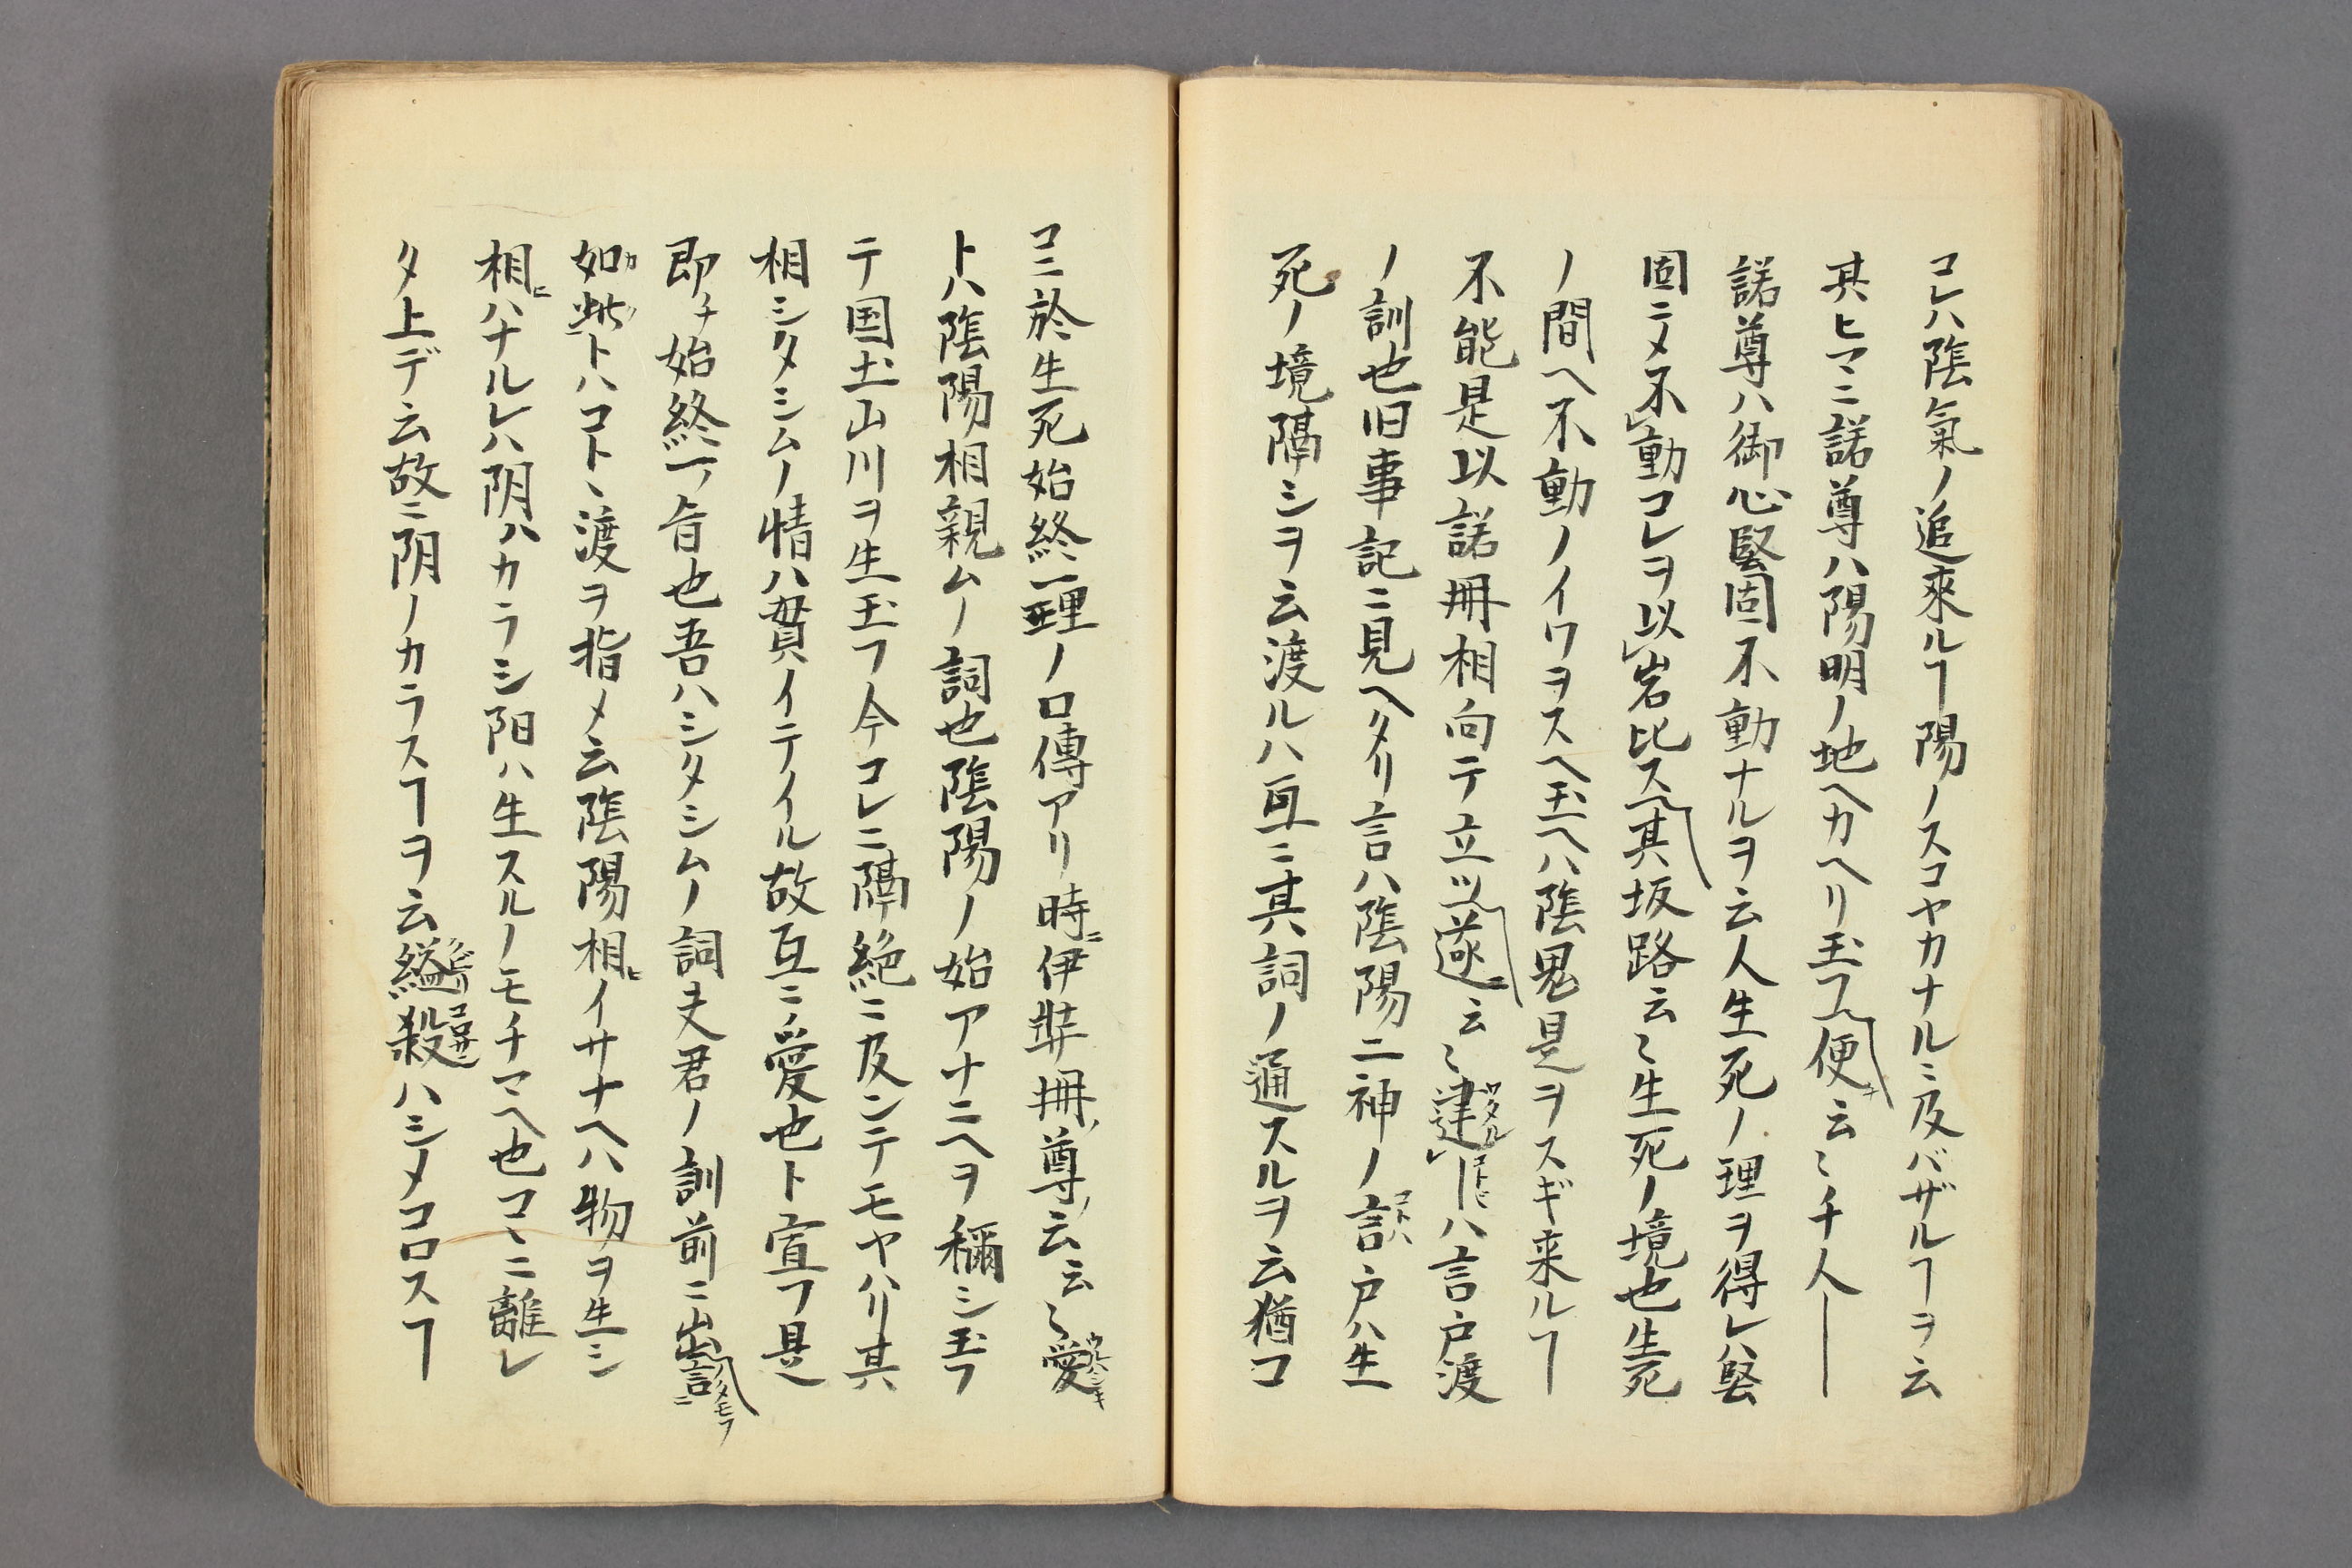 コレハ陰氣ノ追來ルヿ陽ノスコヤカナルニ及バザルヿヲ云
其ヒマニ諾尊ハ陽明ノ地ヘカヘリ玉フ便云〻千人―
諾尊ハ御心堅固不動ナルヲ云人生死ノ理ヲ得レハ堅
固ニメ不動コレヲ以岩比ス其坂路云〻生死ノ境也生死
ノ間ヘ不動ノイワヲスヘ玉ヘハ陰鬼是ヲスギ来ルヿ
不能是以諾冊相向テ立ツ遂ニ云〻建ワタルコトヾ―ハ言戸渡
ノ訓也旧事記ニ見ヘタリ言ハ陰陽二神ノ言コトハ戸ハ生
死ノ境隔シヲ云渡ルハ互ニ其詞ノ通スルヲ云猶コ
コニ於生死始終一理ノ口傳アリ時ニ伊弉冊ノ尊ノ云云〻愛ウルハシキ
トハ陰陽相親ムノ詞也陰陽ノ始アナニヘヲ稱シ玉フ
テ国土山川ヲ生玉フ今コレニ隔絶ニ及ンテモヤハリ其
相シタシムノ情ハ貫イテイル故互ニ愛也ト宣フ是
即チ始終一ノ旨也吾ハシタシムノ詞夫君ノ訓前ニ出言ノタモフニ
如カ此トハコトヽ渡ヲ指メ云陰陽相ヒイサナヘハ物ヲ生シ
相ヒハナルレハ阴ハカラシ阳ハ生スルノモチマヘ也コヽニ離レ
タ上デ云故ニ阴ノカラスヿヲ云縊クビリ殺コロサンハシメコロスヿ